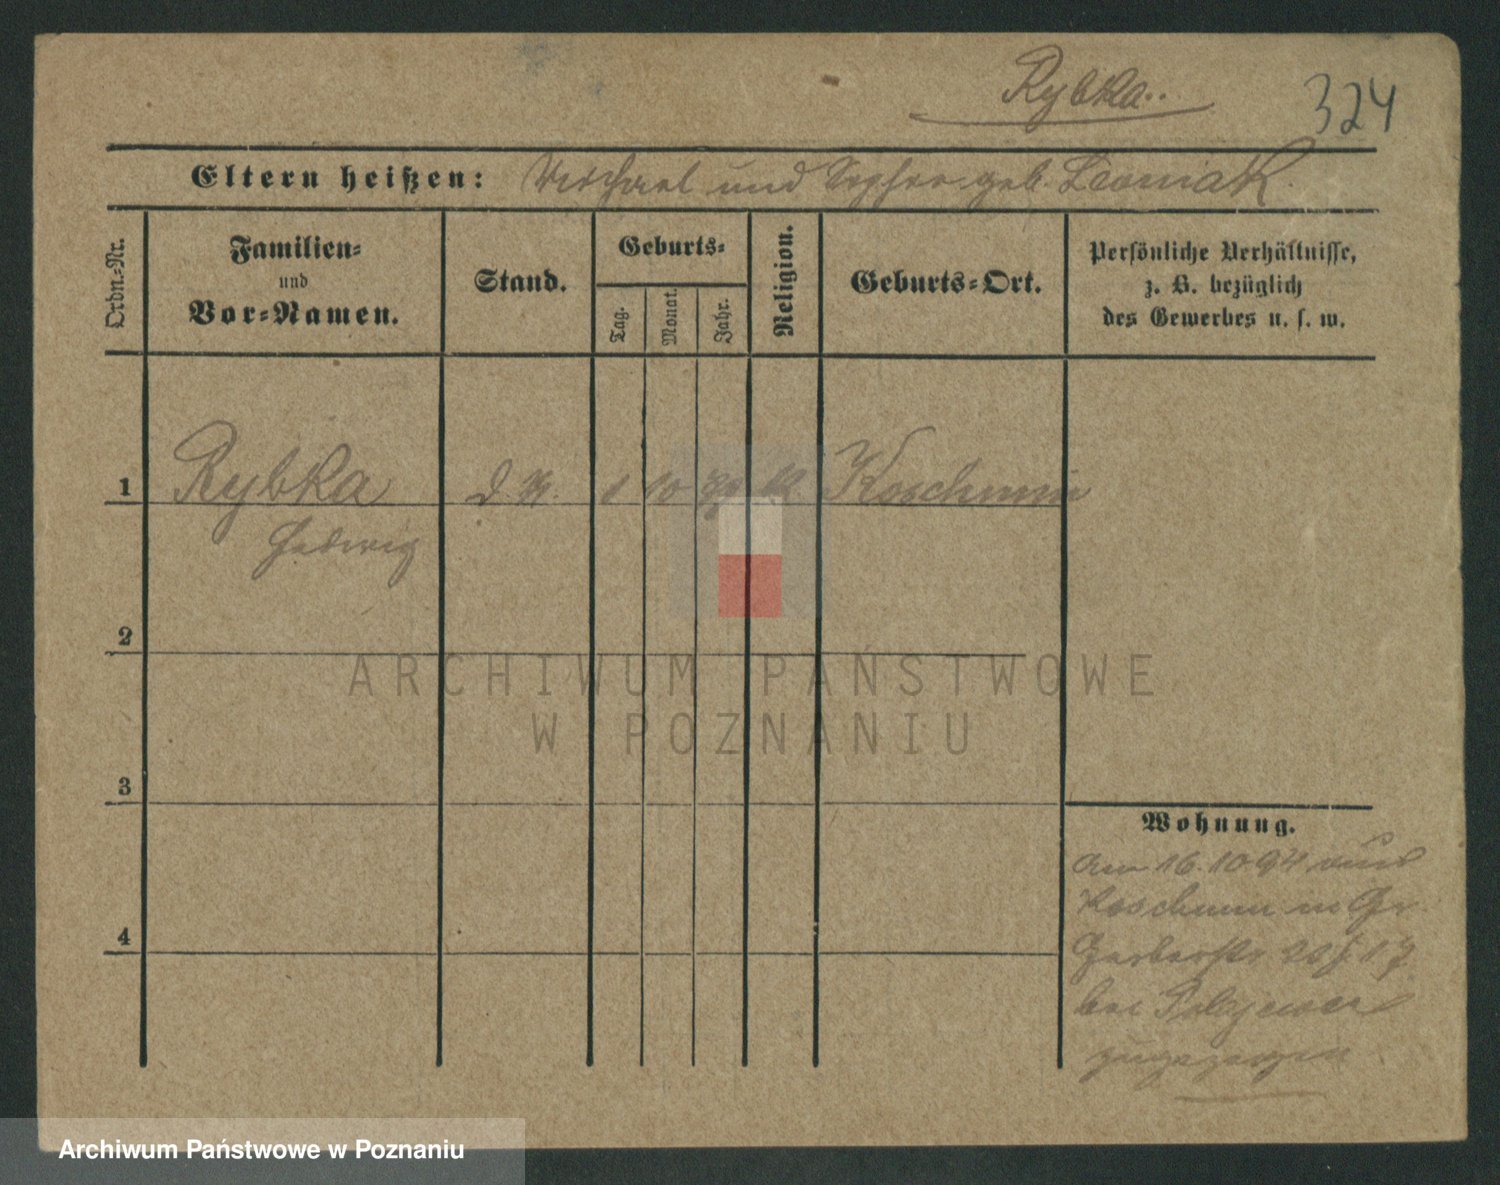 Rybka.
324
Eltern heißen: Michael und Sophie geb. Leoniak.
Ordn.-Nr.
Familien-
und
Vor-Namen.
Stand.
Geburts-
Tag.
Monat.
Jahr.
Religion.
Geburts-Ort.
Persönliche Verhältnisse,
z. B. bezüglich
des Gewerbes u. s. w.
1
Rybka
d M. 1 10 k. Koschmin
Hedwig
2
3
4
Wohnung.
am 16.10.94 aus
Koschmin in Gr
Gerberstr 17
bei
zugezogen
ARCHIWUM PAŃSTWOWE
W POZNANIU
Archiwum Państwowe w Poznaniu